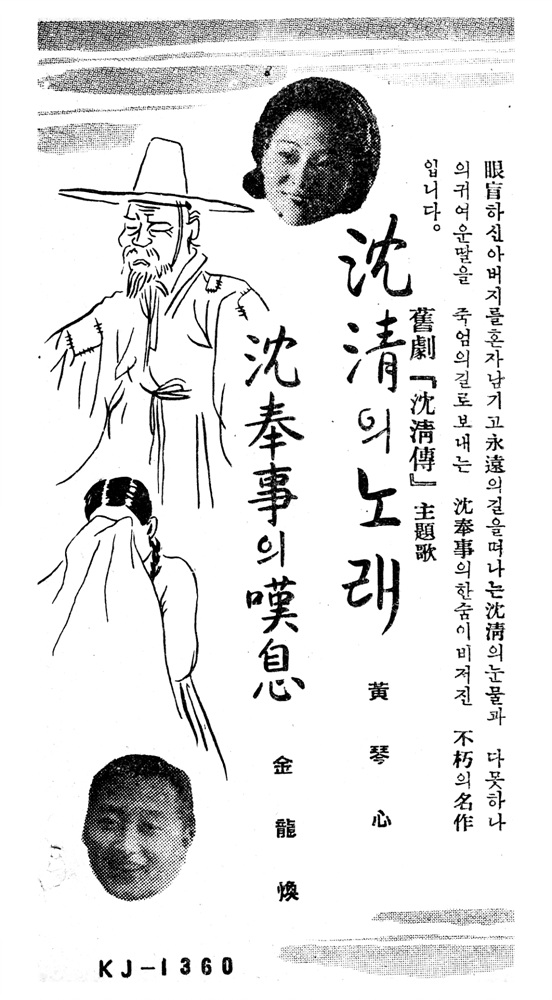 眼盲하신아버지를혼자남기고永遠의길을떠나는沈淸의눈물과 다못하나
의귀여운딸을 죽엄의길로보내는 沈奉事의한숨이비저진 不朽의名作
입니다。
舊劇『沈淸傳』主題歌
沈淸의노래
黃琴心
沈奉事의嘆息
金龍煥
KJ-1360